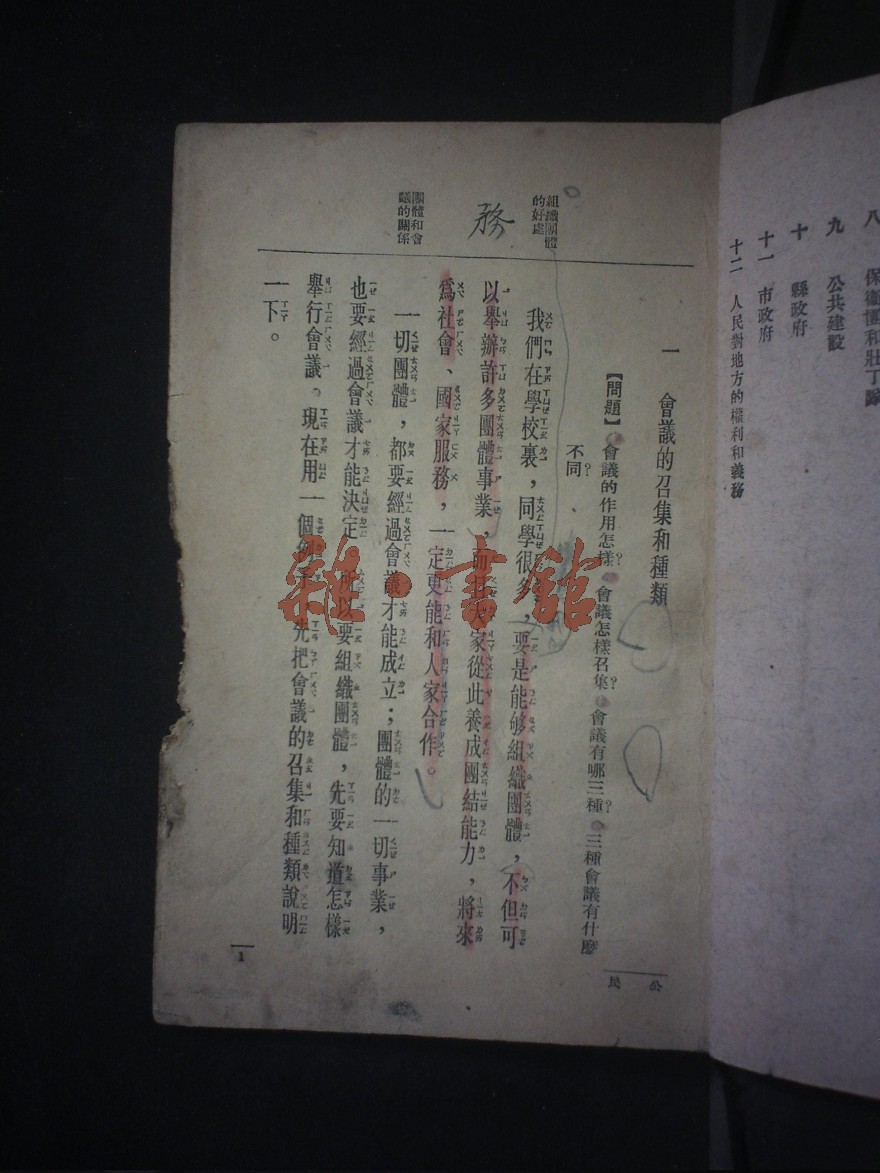 八　保衛團和壯丁隊
九　公共建設
十　縣政府
十一　市政府
十二　人民對地方的權利和義務
公民
一　會議的召集和種類
【問題】會議的作用怎樣？會議怎樣召集？會議有哪三種？三種會議有什麼
不同？
組織團體
的好處
我們在學校裏，同學很多，要是能够組織團體，不但可
以舉辦許多團體事業，而且大家從此養成團結能力，將來
務
爲社會、國家服務，一定更能和人家合作。
團體和會
議的關係
一切團體，都要經過會議才能成立；團體的一切事業，
也要經過會議才能決定，所以要組織團體，先要知道怎樣
舉行會議。現在用一個例子，先把會議的召集和種類說明
一下。
1
雜·書館